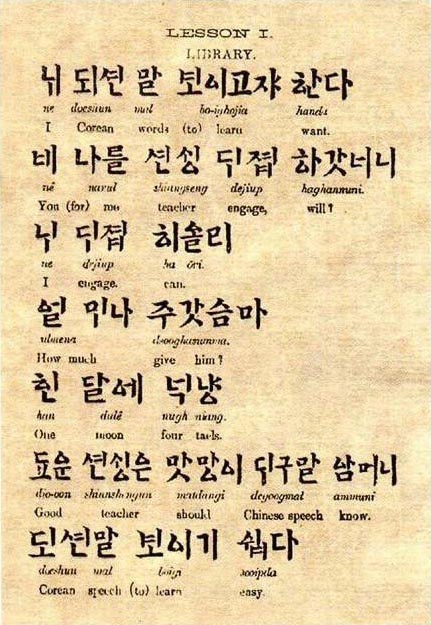 LESSON I.
LIBRARY.
ᄂᆡ 되션 말 보이고쟈 한다
ne doeshun mal bo-ighojia handa
I Corean words (to) learn want.
네 나를 션ᄉᆡᆼ ᄃᆡ졉 하갓너니
nê narul shiangseng dejiup haghannuni.
You (for) me teacher engage, will?
ᄂᆡ ᄃᆡ졉
ne dejiup
I engage. can.
얼ᄆᆡ나 주갓슴마
ulmena
How much give him?
달에 넉냥
han dalê nugh niang.
One moon four taels.
됴운 션ᄉᆡᆼ은 맛망이 ᄃᆡ구말 암머니
dio-oon matdangi degoogmal ammuni
Good teacher should Chinese speech know.
되션말 보이기 쉽다
doeshun mal boigi sooipda
Corean speech (to) learn easy.